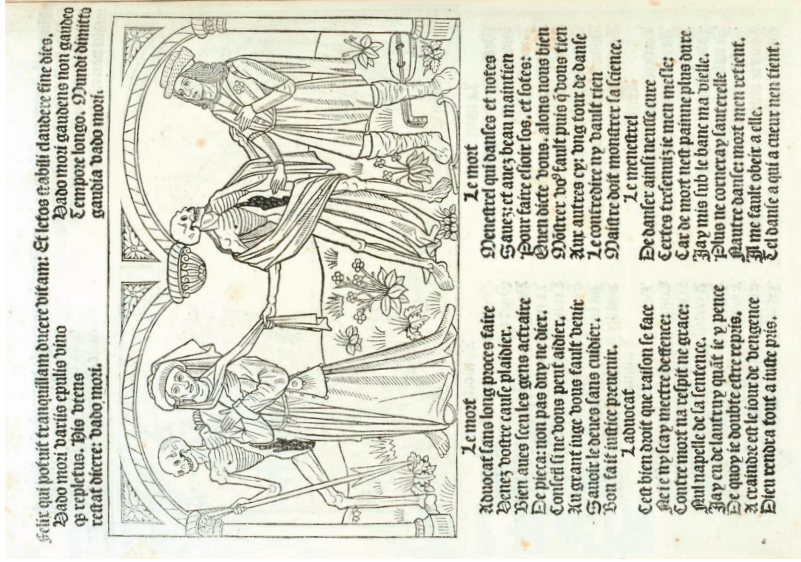 Felix qui potuit tranquillam ducere vitam: Et letos stabili claudere fine dies.
Vado mori variis epulis vino
qȝ repletus. His utens
restat dicere: vado mori.
Vado mori gaudens non gaudeo
Tempore longo. Mundi dimitto
gaudia vado mori.
Le mort
Advocat sans long proces faire
Venez vostre cause plaidier.
Bien aves sceu les gens actraire
De pieca: non pas duy ne dier.
Conseil si ne vous peut aidier.
Au grant iuge vous fault venir
Savoir le deves sans cuidier.
Bon fait iustice prevenir.
Ladvocat
Cest bien droit que raison se face
Ne ie ny scay mectre deffence:
Contre mort na respit ne grace:
Nul napelle de sa sentence.
Jay eu de lautruy quãt ie y pence
De quoy ie doubte estre repris.
A craindre est le iour de vengence
Dieu rendra tout a iuste pris.
Le mort
Menestrel qui danses et notes
Savez: et avez beau maintien
Pour faire esioir sos. et sotes:
Quen dicte vous. alons nous bien
Mõstrer voꝰ fault puis q̃ vous tien
Aux autres cy: ung tour de danse
Le contredire ny vault rien
Maistre doit monstrer sa science.
Le menestrel
De danser ainsi neusse cure
Certes tresenviz ie men mesle:
Car de mort nest painne plus dure
Jay mis sub le banc ma vielle.
Plus ne corneray sauterelle
Nautre danse: mort men retient.
Il me fault obeir a elle.
Tel danse a qui a cueur nen tient.